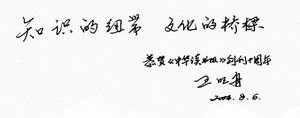 知识的纽带 文化的桥樑
恭贺《中华读书报》创刊十周年
2004.8.6.